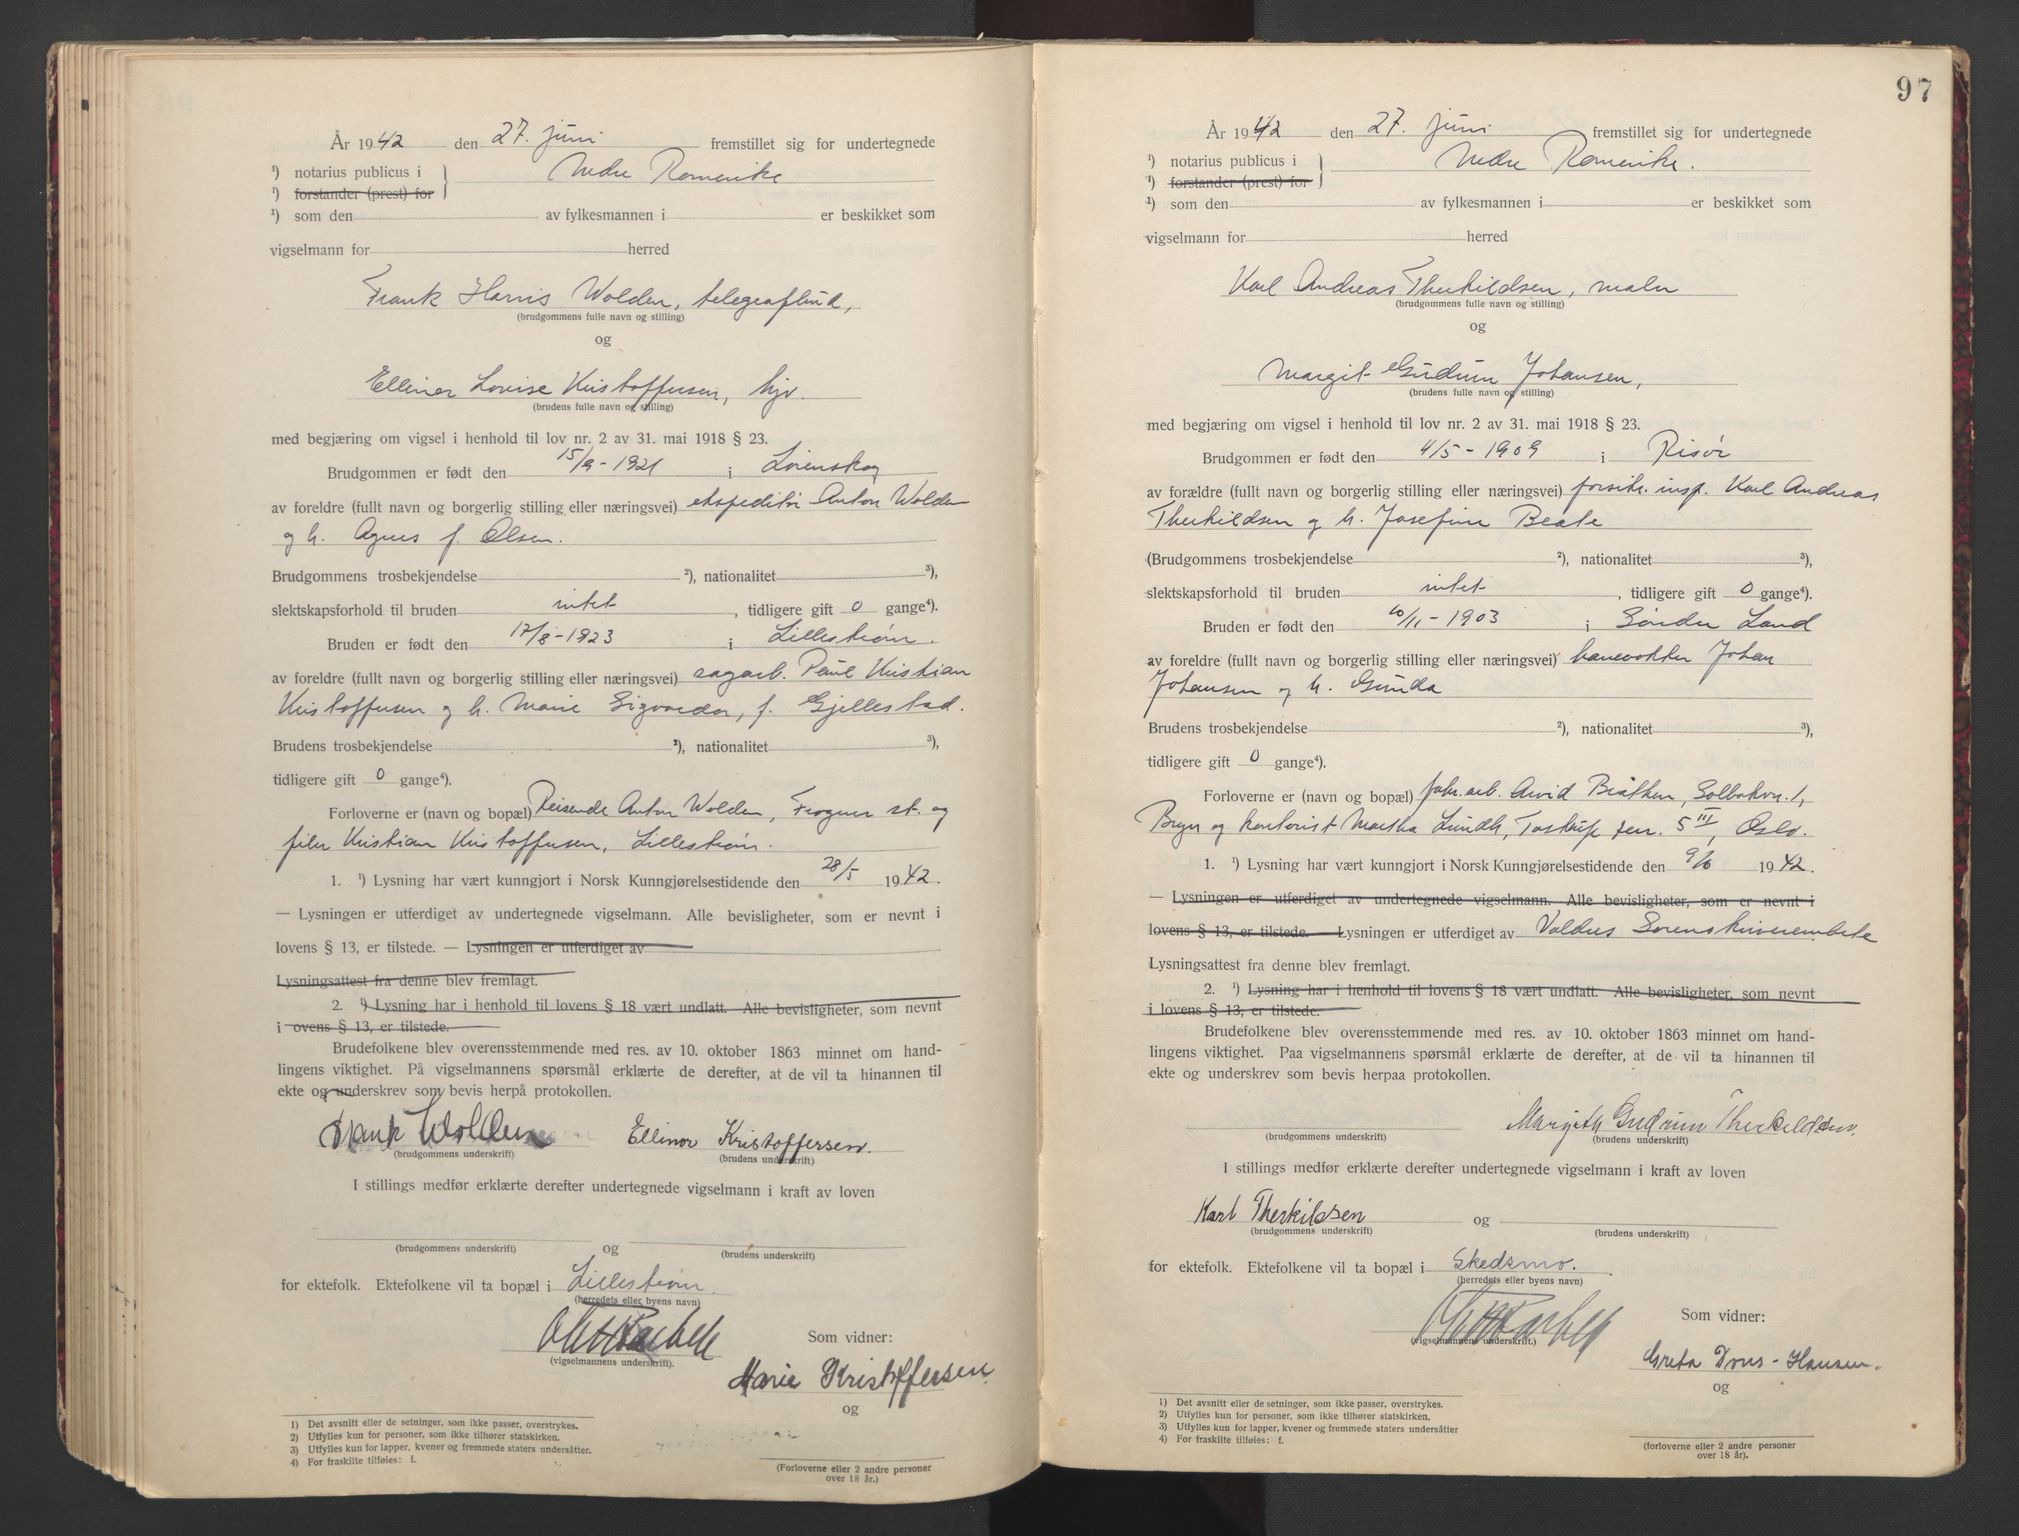 År 1942 den 27. juni fremstillet sig for undertegnede
¹) notarius publicus i } Nedre Romerike
¹) forstander (prest) for
¹) som den av fylkesmannen i er beskikket som
vigselmann for herred
Frank Harris Wolden, telegraflind,
(brudgommens fulle navn og stilling)
og
Ellinor Lovise Kristoffersen, hjv.
(brudens fulle navn og stilling)
med begjæring om vigsel i henhold til lov nr. 2 av 31. mai 1918 § 23.
Brudgommen er født den 15/9-1921 i Lørenskog
av foreldre (fullt navn og borgerlig stilling eller næringsvei) ekspeditør Anton Wolden
og h. Agnes f. Olsen.
Brudgommens trosbekjendelse ²), nationalitet ³),
slektskapsforhold til bruden intet, tidligere gift 0 gange⁴).
Bruden er født den 17/8-1923 i Lillestrøm.
av foreldre (fullt navn og borgerlig stilling eller næringsvei) sagarb. Paul Kristian
Kristoffersen og h. Marie Sigvarda, f. Gjellestad.
Brudens trosbekjendelse ²), nationalitet ³),
tidligere gift 0 gange⁴).
Forloverne er (navn og bopæl) Reisende Anton Wolden, Frogner st. og
filer Kristian Kristoffersen, Lillestrøm.
1. ¹) Lysning har vært kunngjort i Norsk Kunngjørelsestidende den 28/5 1942.
— Lysningen er utferdiget av undertegnede vigselmann. Alle bevisligheter, som er nevnt i
lovens § 13, er tilstede. — Lysningen er utferdiget av
Lysningsattest fra denne blev fremlagt.
2. ¹) Lysning har i henhold til lovens § 18 vært undlatt. Alle bevisligheter, som nevnt
i ovens § 13, er tilstede.
Brudefolkene blev overensstemmende med res. av 10. oktober 1863 minnet om hand-
lingens viktighet. På vigselmannens spørsmål erklærte de derefter, at de vil ta hinannen til
ekte og underskrev som bevis herpå protokollen.
Frank Wolden Ellinor Kristoffersen.
(brudgommens underskrift) (brudens underskrift)
I stillings medfør erklærte derefter undertegnede vigselmann i kraft av loven
og
(brudgommens underskrift) (brudens underskrift)
for ektefolk. Ektefolkene vil ta bopæl i Lillestrøm.
(herredets eller byens navn)
(vigselmannens underskrift).
Som vidner:
Marie Kristoffersen.
og
1) Det avsnitt eller de setninger, som ikke passer, overstrykes.
2) Utfylles kun for personer, som ikke tilhører statskirken.
3) Utfylles kun for lapper, kvener og fremmede staters undersåtter.
4) For fraskilte tilføies: f.
(Forloverne eller 2 andre personer
over 18 år.)
97
År 1942 den 27. juni fremstillet sig for undertegnede
¹) notarius publicus i } Nedre Romerike.
¹) forstander (prest) for
¹) som den av fylkesmannen i er beskikket som
vigselmann for herred
Karl Andreas Therkildsen, maler
(brudgommens fulle navn og stilling)
og
Margit Gudrun Johansen,
(brudens fulle navn og stilling)
med begjæring om vigsel i henhold til lov nr. 2 av 31. mai 1918 § 23.
Brudgommen er født den 4/5-1909 i Risør
av forældre (fullt navn og borgerlig stilling eller næringsvei) forsikr. insp. Karl Andreas
Therkildsen og h. Josefine Beate
(Brudgommens trosbekjendelse ²), nationalitet ³),
slektskapsforhold til bruden intet, tidligere gift 0 gange⁴).
Bruden er født den 10/11-1903 i Søndre Land
av foreldre (fullt navn og borgerlig stilling eller næringsvei) banevokter Johan
Johansen og h. Gunda
Brudens trosbekjendelse ²), nationalitet ³),
tidligere gift 0 gange⁴).
Forloverne er (navn og bopæl) fabr.arb. Arvid Bråthen, Solbakkv. 1,
Bryn og kontorist Martha Lundh, Tostrup terr. 5 III, Oslo.
1. ¹) Lysning har vært kunngjort i Norsk Kunngjørelsestidende den 9/6 1942.
— Lysningen er utferdiget av undertegnede vigselmann. Alle bevisligheter, som er nevnt i
lovens § 13, er tilstede. — Lysningen er utferdiget av Valdres Sorenskriverembete
Lysningsattest fra denne blev fremlagt.
2. ¹) Lysning har i henhold til lovens § 18 vært undlatt. Alle bevisligheter, som nevnt
i lovens § 13, er tilstede.
Brudefolkene blev overensstemmende med res. av 10. oktober 1863 minnet om hand-
lingens viktighet. Paa vigselmannens spørsmål erklærte de derefter, at de vil ta hinannen til
ekte og underskrev som bevis herpaa protokollen.
Margith Gudrun Therkildsen.
(brudgommens underskrift) (brudens underskrift)
I stillings medfør erklærte derefter undertegnede vigselmann i kraft av loven
Karl Therkildsen og
(brudgommens underskrift) (brudens underskrift)
for ektefolk. Ektefolkene vil ta bopæl i Skedsmo.
(herredets eller byens navn)
(vigselmannens underskrift.)
Som vidner:
Greta Dons-Hansen.
og
1) Det avsnitt eller de setninger, som ikke passer, overstrykes.
2) Utfylles kun for personer, som ikke tilhører statskirken.
3) Utfylles kun for lapper, kvener og fremmede staters undersåtter
4) For fraskilte tilføies: f.
(forloverne eller 2 andre personer
over 18 år).